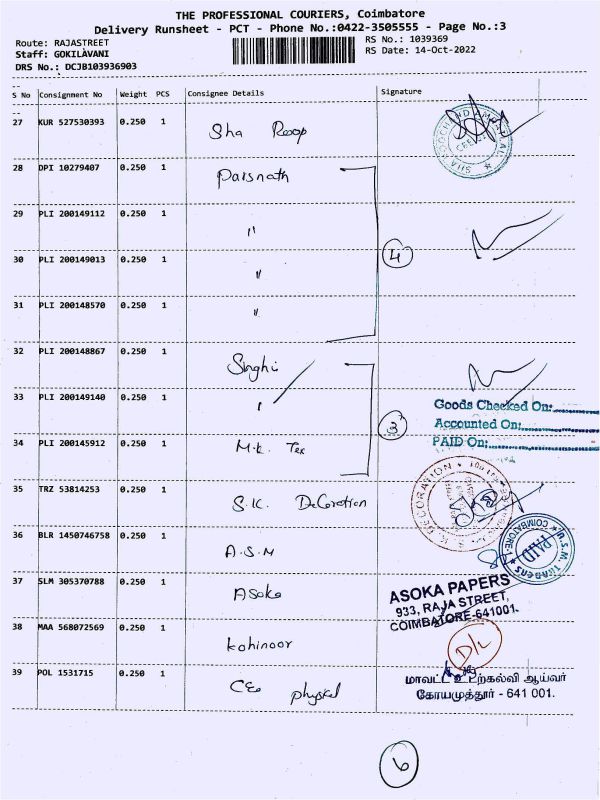 THE PROFESSIONAL COURIERS, Coimbatore
Delivery Runsheet - PCT - Phone No.:0422-3505555 - Page No.:3
Route: RAJASTREET RS No.: 1039369
Staff: GOKILAVANI RS Date: 14-Oct-2022
DRS No.: DCJB103936903
S No Consignment No Weight PCS Consignee Details Signature
27 KUR 527530393 0.250 1 Sha Roop
28 DPI 10279407 0.250 1 Parsnath
29 PLI 200149112 0.250 1 "
30 PLI 200149013 0.250 1 " 4
31 PLI 200148570 0.250 1 "
32 PLI 200148867 0.250 1 Singhi
33 PLI 200149140 0.250 1 "
Goods Checked On:
Accounted On:
PAID On:
34 PLI 200145912 0.250 1 M.K. Tex 3
35 TRZ 53814253 0.250 1 S.K. Decoration
S.K. DECORATION
36 BLR 1450746758 0.250 1 A.S.M
PAID
COIMBATORE-1
37 SLM 305370788 0.250 1 Asoka
ASOKA PAPERS
933, RAJA STREET,
COIMBATORE-641001.
38 MAA 568072569 0.250 1 Kohinoor
39 POL 1531715 0.250 1 CEO physical
மாவட்ட உடற்கல்வி ஆய்வர்
கோயமுத்தூர் - 641 001.
6